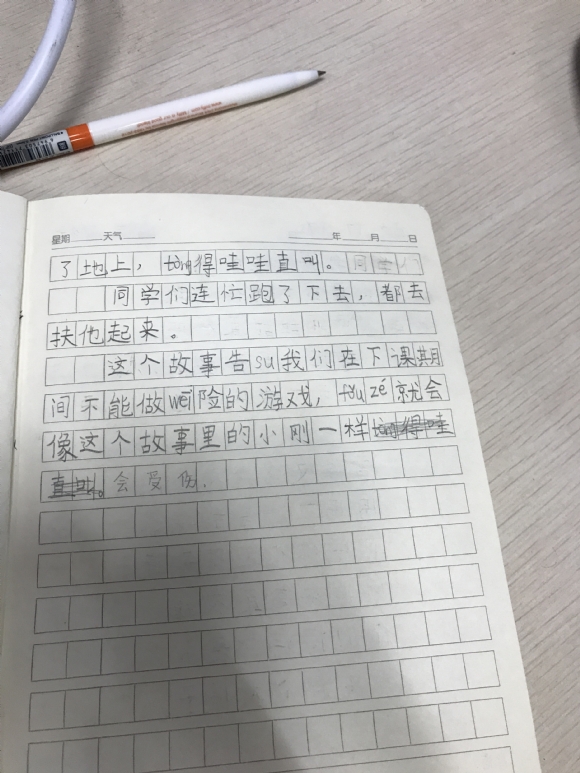 星期 天气 年 月 日
了地上，tòng得哇哇直叫。
同学们连忙跑了下去，都去
扶他起来。
这个故事告su我们在下课期
间不能做wēi险的游戏，fǒu zé就会
像这个故事里的小刚一样tòng得哇
直叫。会受伤.